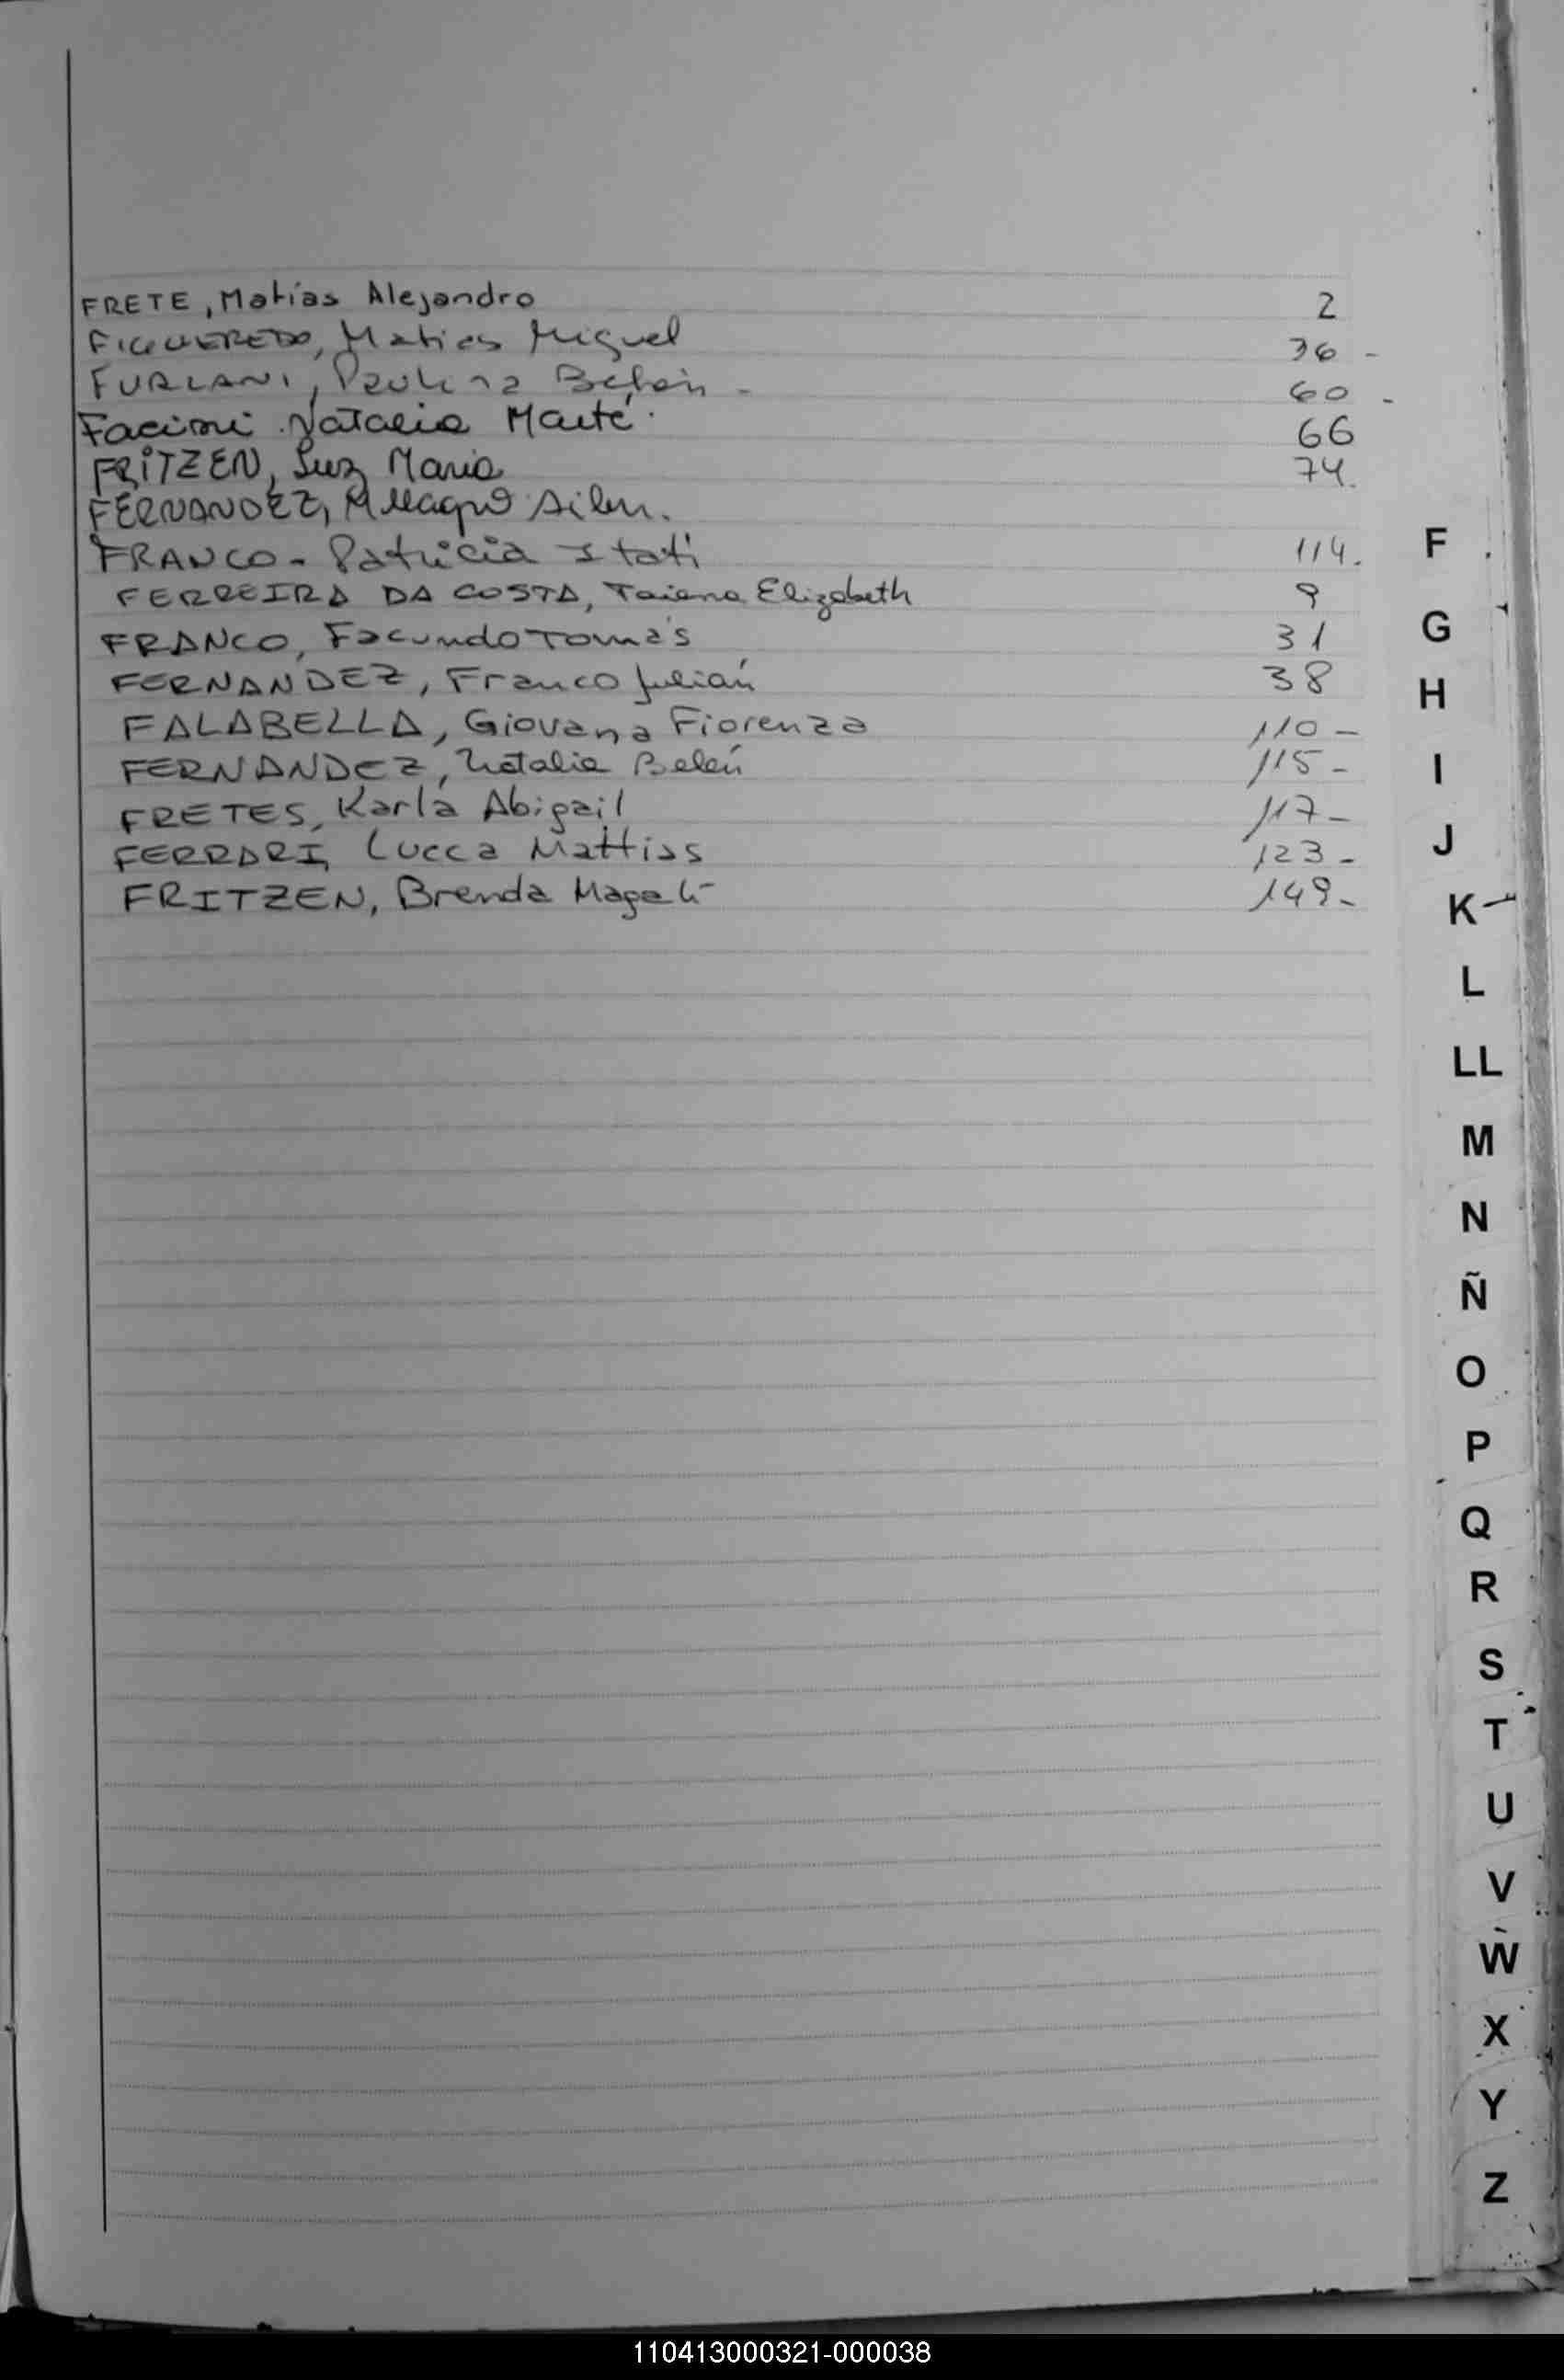 FRETE, Matías Alejandro 2
FIGUEREDO, Matias Miguel 36 -
FURLANI, Paulina Belén - 60 -
Facimi Natalia Maité. 66
FRITZEN, Luz Maria 74.
FERNANDEZ, Milagro Ailen.
FRANCO - Patricia Itatí 114.
FERREIRA DA COSTA, Taiana Elizabeth 9
FRANCO, Facundo Tomás 31
FERNANDEZ, Franco Julián 38
FALABELLA, Giovana Fiorenza 110 -
FERNANDEZ, Natalia Belén 115 -
FRETES, Karla Abigail 117 -
FERRARI, Lucca Mattias 123 -
FRITZEN, Brenda Magalí 149 -
F
G
H
I
J
K
L
LL
M
N
Ñ
O
P
Q
R
S
T
U
V
W
X
Y
Z
110413000321-000038